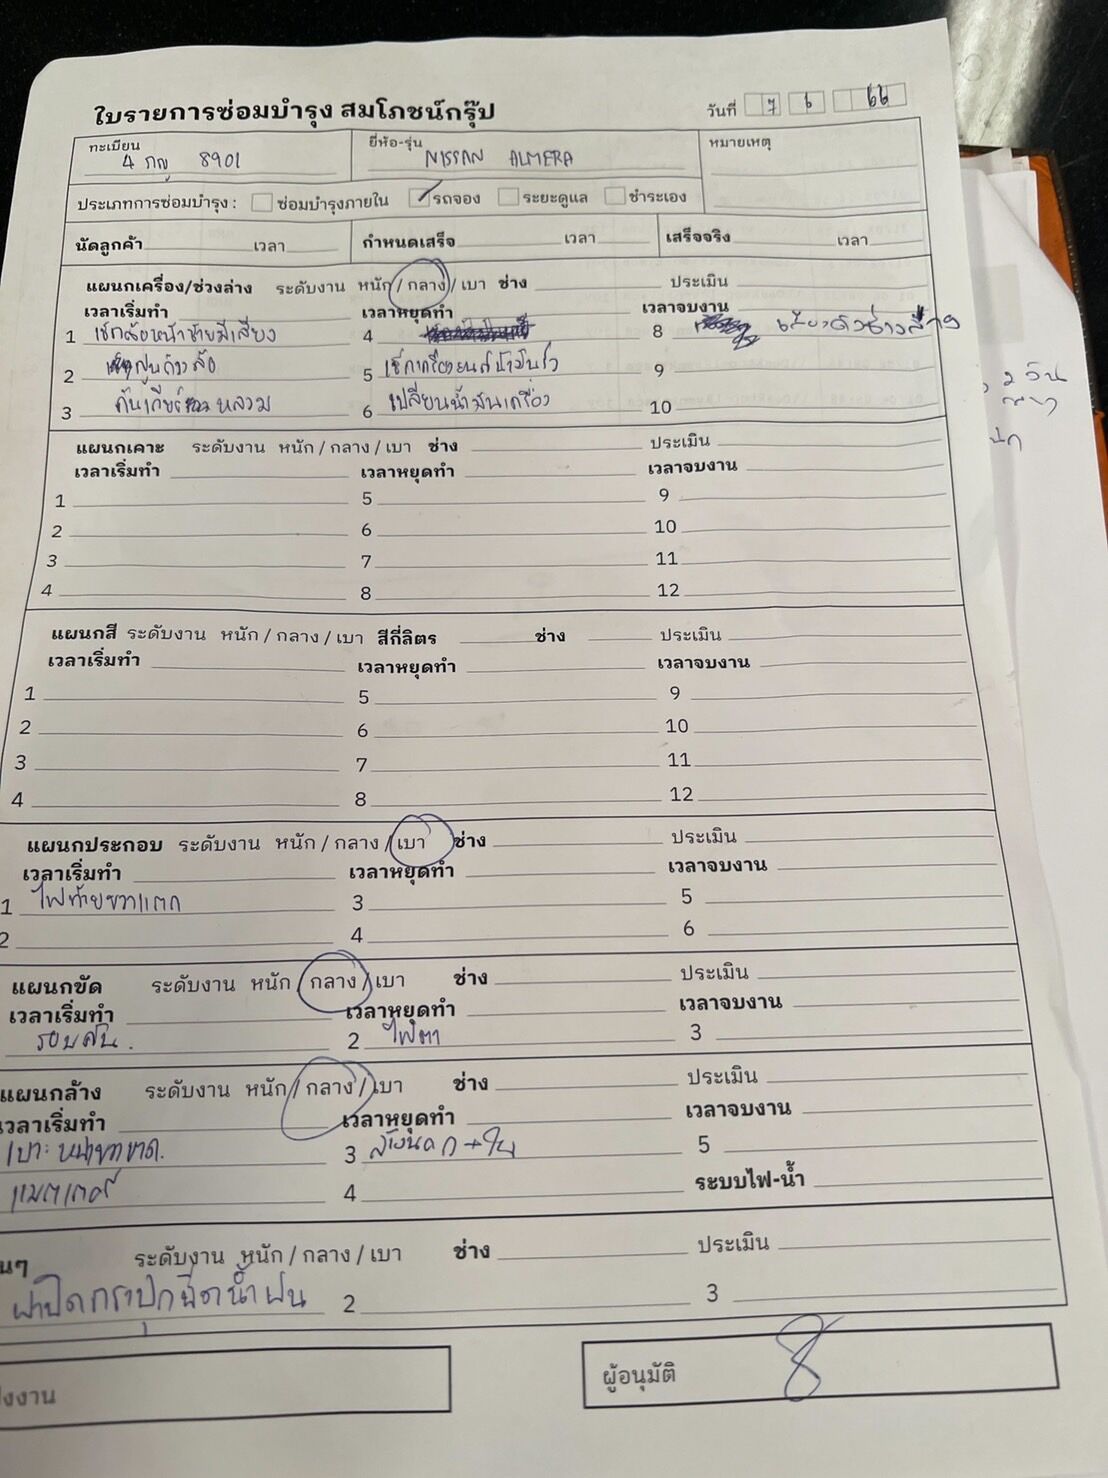 ใบรายการซ่อมบำรุง สมโภชน์กรุ๊ป
วันที่ 7 6 66
ทะเบียน 4 กญ 8901 ยี่ห้อ-รุ่น NISSAN ALMERA หมายเหตุ
ประเภทการซ่อมบำรุง : ซ่อมบำรุงภายใน รถจอง ระยะดูแล ชำระเอง
นัดลูกค้า เวลา กำหนดเสร็จ เวลา เสร็จจริง เวลา
แผนกเครื่อง/ช่วงล่าง ระดับงาน หนัก / กลาง / เบา ช่าง ประเมิน
เวลาเริ่มทำ เวลาหยุดทำ เวลาจบงาน
1 เช็กล้อหน้าซ้ายมีเสียง 4 8
2 ศูนย์ถ่วงล้อ 5 เช็กเครื่องยนต์น้ำมันรั่ว 9
3 คันเกียร์หลวม 6 เปลี่ยนน้ำมันเครื่อง 10
แผนกเคาะ ระดับงาน หนัก / กลาง / เบา ช่าง ประเมิน
เวลาเริ่มทำ เวลาหยุดทำ เวลาจบงาน
1 5 9
2 6 10
3 7 11
4 8 12
แผนกสี ระดับงาน หนัก / กลาง / เบา สีกี่ลิตร ช่าง ประเมิน
เวลาเริ่มทำ เวลาหยุดทำ เวลาจบงาน
1 5 9
2 6 10
3 7 11
4 8 12
แผนกประกอบ ระดับงาน หนัก / กลาง / เบา ช่าง ประเมิน
เวลาเริ่มทำ เวลาหยุดทำ เวลาจบงาน
1 ไฟท้ายขวาแตก 3 5
2 4 6
แผนกขัด ระดับงาน หนัก / กลาง / เบา ช่าง ประเมิน
เวลาเริ่มทำ เวลาหยุดทำ เวลาจบงาน
รอบคัน. 2 ไฟตา 3
แผนกล้าง ระดับงาน หนัก / กลาง / เบา ช่าง ประเมิน
เวลาเริ่มทำ เวลาหยุดทำ เวลาจบงาน
เบาะหน้าขวาขาด. 3 5
แบตเตอรี่ 4 ระบบไฟ-น้ำ
นๆ ระดับงาน หนัก / กลาง / เบา ช่าง ประเมิน
ฝาปิดกระปุกฉีดน้ำฝน 2 3
งงาน ผู้อนุมัติ